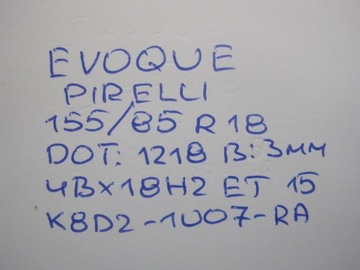 EVOQUE
PIRELLI
155/85 R 18
DOT: 1218 B: 3мм
4Bx18H2 ET 15
K8D2-1007-RA